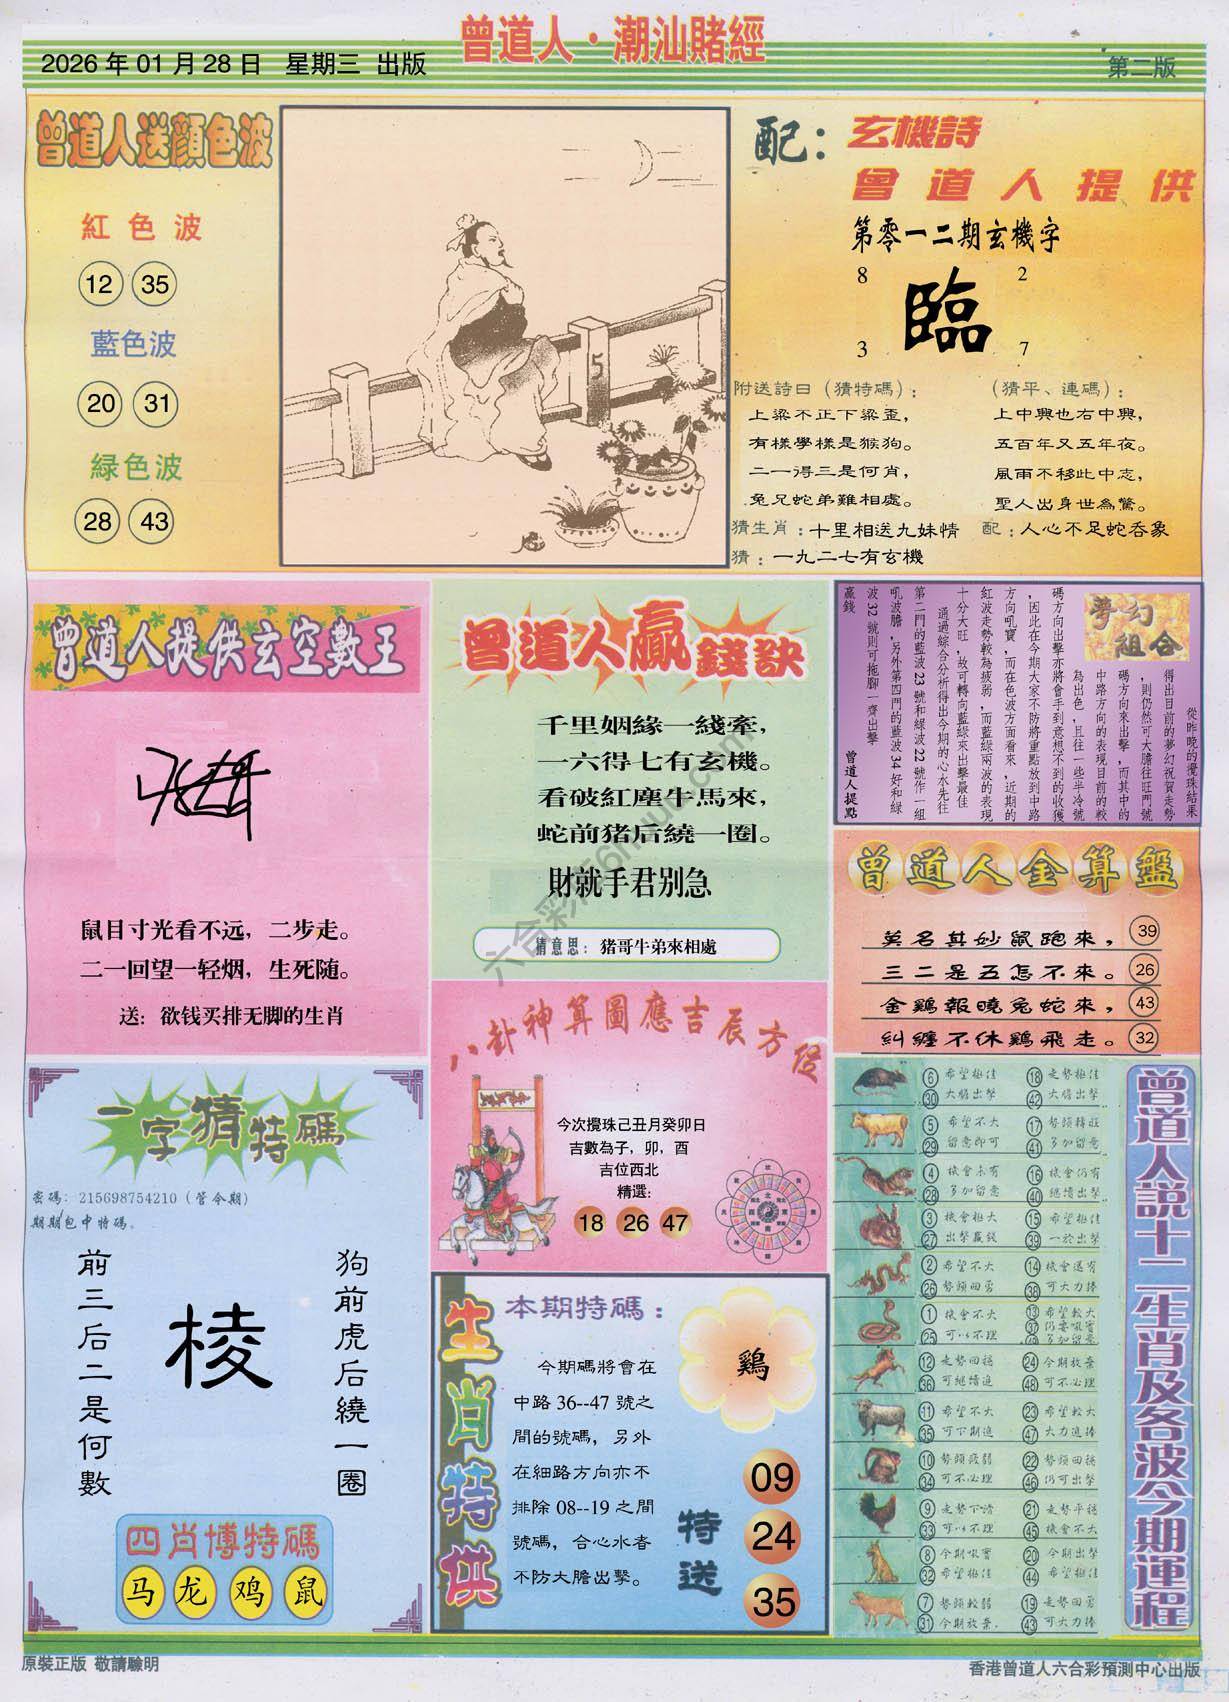 曾道人·潮汕賭經
2026年01月28日 星期三 出版
第二版
曾道人送顔色波
紅色波
12 35
藍色波
20 31
緑色波
28 43
5
配：
玄機詩
曾道人提供
第零一二期玄機字
8 2
臨
3 7
附送詩曰（猜特碼）：
上梁不正下梁歪，
有樣學樣是猴狗。
二一得三是何肖，
兔兄蛇弟難相處。
（猜平、連碼）：
上中興也右中興，
五百年又五年夜。
風雨不移此中志，
聖人出身世為驚。
猜生肖：十里相送九妹情
配：人心不足蛇吞象
猜：一九二七有玄機
曾道人提供玄空數王
鼠目寸光看不远，二步走。
二一回望一轻烟，生死随。
送：欲钱买排无脚的生肖
曾道人贏錢訣
千里姻緣一綫牽，
一六得七有玄機。
看破紅塵牛馬來，
蛇前猪后繞一圈。
財就手君別急
猜意思：猪哥牛弟來相處
夢幻組合
從昨晚的攪珠結果
得出目前的夢幻祝賀走勢
，則仍然可大膽往旺門號
碼方向來出擊，而其中的
中路方向的表現目前的較
為出色，且往一些半冷號
碼方向出擊亦將會手到意想不到的收獲
，因此在今期大家不防將重點放到中路
方向吼寶，而在色波方面看來，近期的
紅波走勢較為疲弱，而藍綠兩波的表現
十分大旺，故可轉向藍綠來出擊最佳
通過綜合分析得出今期的心水先往
第二門的藍波23號和綠波22號作一組
吼波膽，另外第四門的藍波34好和綠
波32號則可拖腳一齊出擊
贏錢
曾道人提點
曾道人金算盤
莫名其妙鼠跑來， 39
三二是五怎不來。 26
金鷄報曉兔蛇來， 43
糾纏不休鷄飛走。 32
八卦神算圖應吉辰方位
今次攪珠己丑月癸卯日
吉數為子，卯，酉
吉位西北
精選：
18 26 47
一字猜特碼
密碼：215698754210（管今期）
期期包中特碼。
前三后二是何數
棱
狗前虎后繞一圈
四肖博特碼
马 龙 鸡 鼠
生肖特供
本期特碼：
今期碼將會在
中路36--47號之
間的號碼，另外
在細路方向亦不
排除08--19之間
號碼，合心水者
不防大膽出擊。
鷄
特送
09
24
35
曾道人説十二生肖及各波今期運程
6 希望極佳 18 走勢極佳
30 大膽出擊 42 大膽出擊
5 希望不大 17 勢頭轉旺
29 留意即可 41 多加留意
4 機會未有 16 機會仍有
28 多加留意 40 繼續出擊
3 機會極大 15 希望極佳
27 出擊贏錢 39 一於出擊
2 希望不大 14 機會還有
26 勢頭回勇 38 可大力捧
1 機會不大 13 希望較大
25 可以不理 37 仍要吼實
多加留意
12 走勢回穩 24 今期放棄
36 可繼續追 48 可不必理
11 希望不大 23 希望較大
35 可下期追 47 大力追捧
10 勢頭疲弱 22 勢頭回穩
34 可不必理 46 仍可出擊
9 走勢下滑 21 走勢平穩
33 可以不理 45 機會不大
8 今期吼實 20 今期出擊
32 希望極佳 44 希望極佳
7 勢頭較弱 19 走勢回勇
31 今期放棄. 43 可大力捧
原裝正版 敬請驗明
香港曾道人六合彩預測中心出版